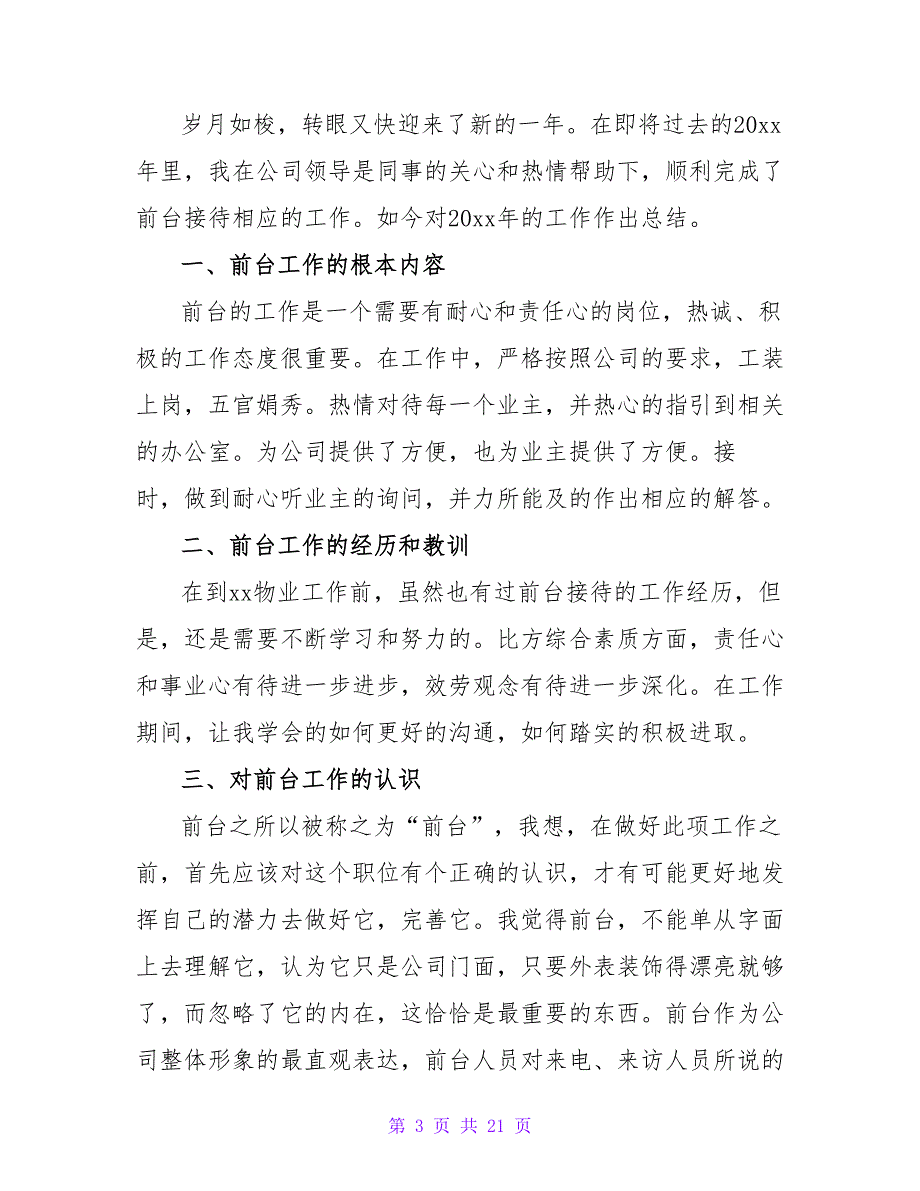 岁月如梭，转眼又快迎来了新的一年。在即将过去的20xx
年里，我在公司领导是同事的关心和热情帮助下，顺利完成了
前台接待相应的工作。如今对20xx年的工作作出总结。
一、前台工作的根本内容
前台的工作是一个需要有耐心和责任心的岗位，热诚、积
极的工作态度很重要。在工作中，严格按照公司的要求，工装
上岗，五官娟秀。热情对待每一个业主，并热心的指引到相关
的办公室。为公司提供了方便，也为业主提供了方便。接
时，做到耐心听业主的询问，并力所能及的作出相应的解答。
二、前台工作的经历和教训
在到xx物业工作前，虽然也有过前台接待的工作经历，但
是，还是需要不断学习和努力的。比方综合素质方面，责任心
和事业心有待进一步进步，效劳观念有待进一步深化。在工作
期间，让我学会的如何更好的沟通，如何踏实的积极进取。
三、对前台工作的认识
前台之所以被称之为“前台”，我想，在做好此项工作之
前，首先应该对这个职位有个正确的认识，才有可能更好地发
挥自己的潜力去做好它，完善它。我觉得前台，不能单从字面
上去理解它，认为它只是公司门面，只要外表装饰得漂亮就够
了，而忽略了它的内在，这恰恰是最重要的东西。前台作为公
司整体形象的最直观表达，前台人员对来电、来访人员所说的
第 3 页 共 21 页